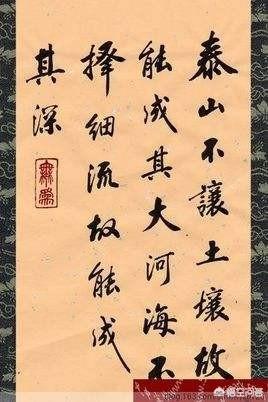 泰山不讓土壤故
能成其大河海不
擇細流故能成
其深
悟空问答